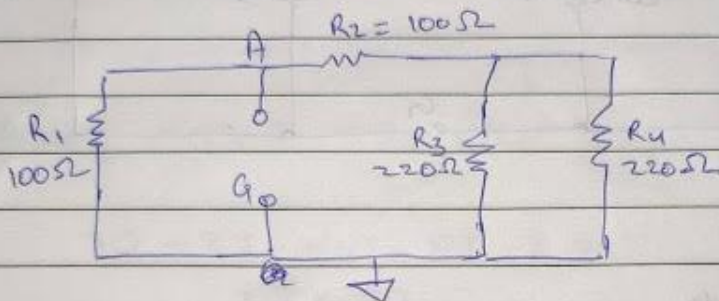 R2 = 100Ω
A
R1
100Ω
R3
220Ω
R4
220Ω
G